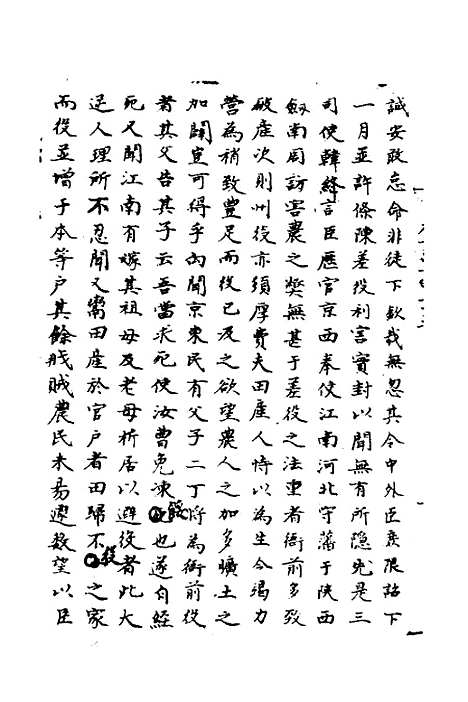 誠安敢忘命非徒下欽哉無忽其令中外臣庶限詔下
一月並許條陳差役利害實封以聞無有所隱先是三
司使韓絳言臣歷官京西奉使江南河北守藩于陝西
劒南周訪害農之弊無甚于差役之法重者衙前多致
破產次則州役亦須厚費夫田產人恃以為生今竭力
營為稍致豐足而役已及之欲望農人之加多曠土之
加闢豈可得乎向聞京東民有父子二丁將為衙前役
者其父告其子云吾當求死使汝曹免凍餒也遂自經
死又聞江南有嫁其祖母及老母析居以避役者此大
逆人理所不忍聞又鬻田產於官戶者田歸不役之家
而役並增于本等戶其餘戕賊農民未易遽數望以臣